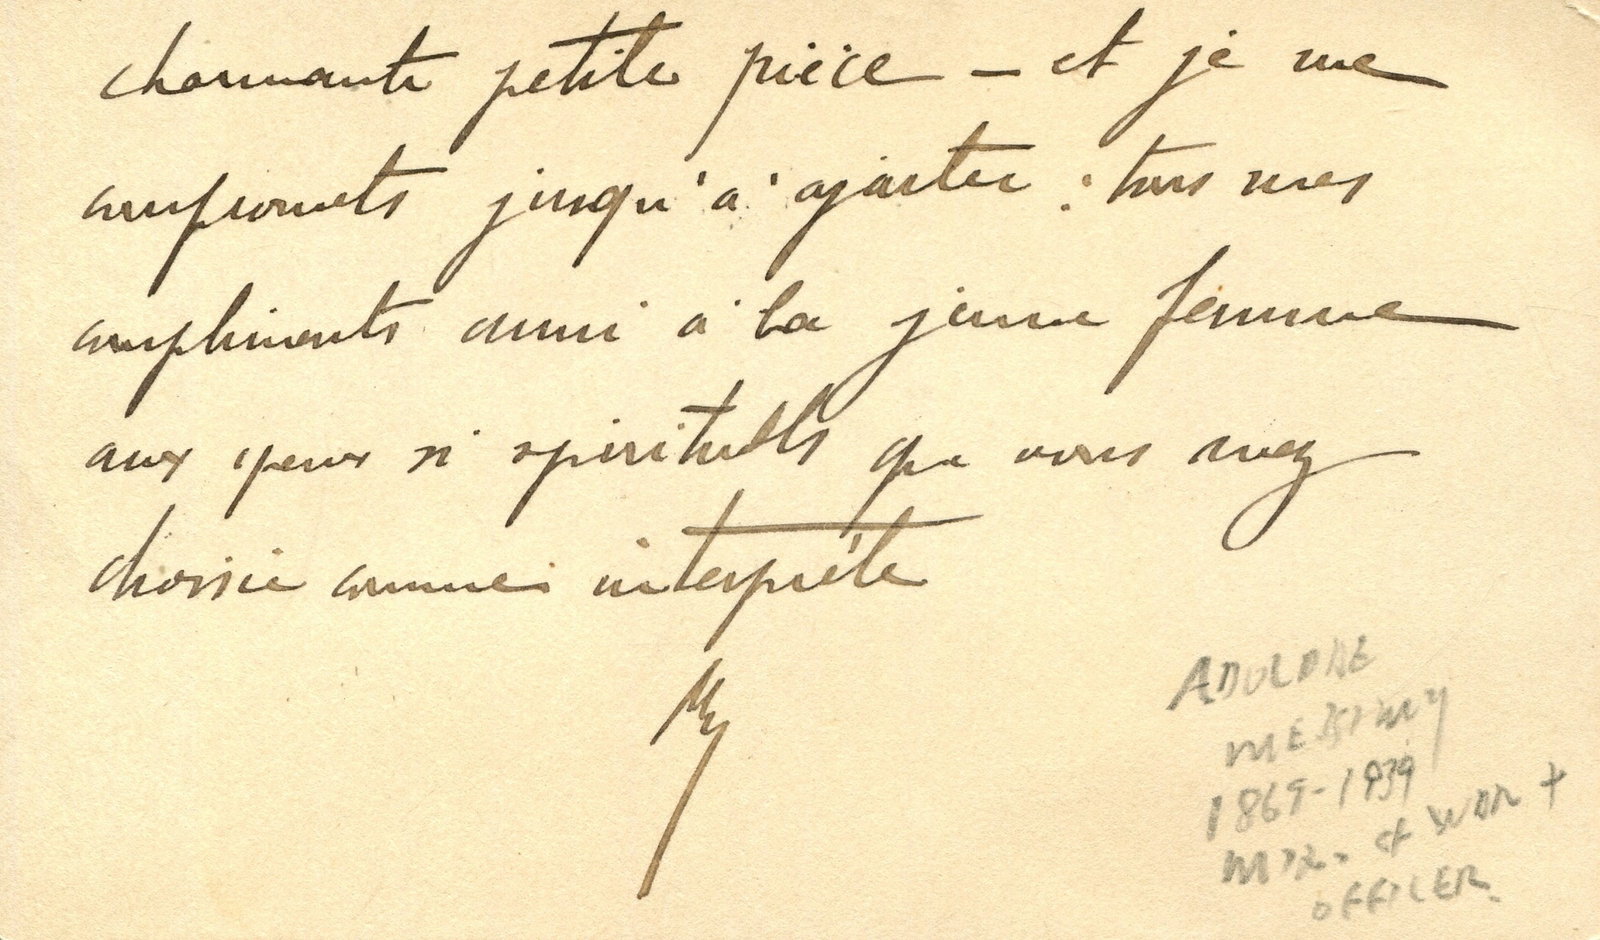 charmante petite pièce — et je me
compromets jusqu'à ajouter : tous mes
compliments aussi à la jeune femme
aux yeux si spirituels que vous avez
choisie comme interprète
My
ADOLPHE
MESSIMY
1869-1939
MIN. of WAR +
OFFICER.